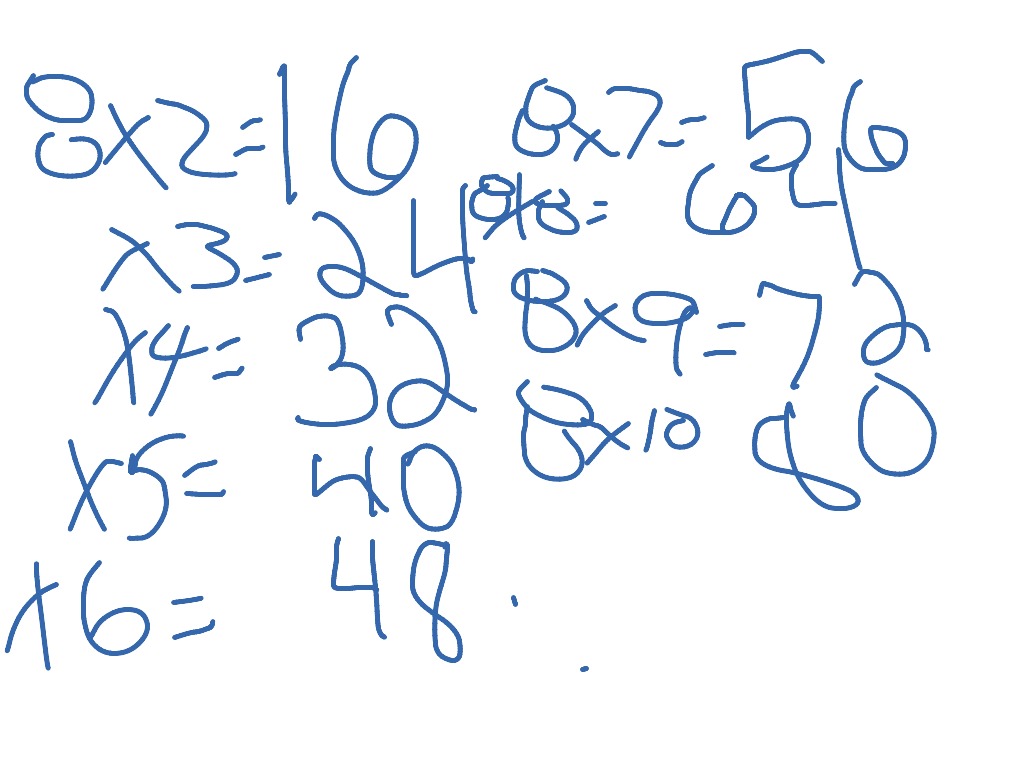 8x2=16
x3=24
x4=32
x5=40
x6=48
8x7=56
8x8=64
8x9=72
8x10 80